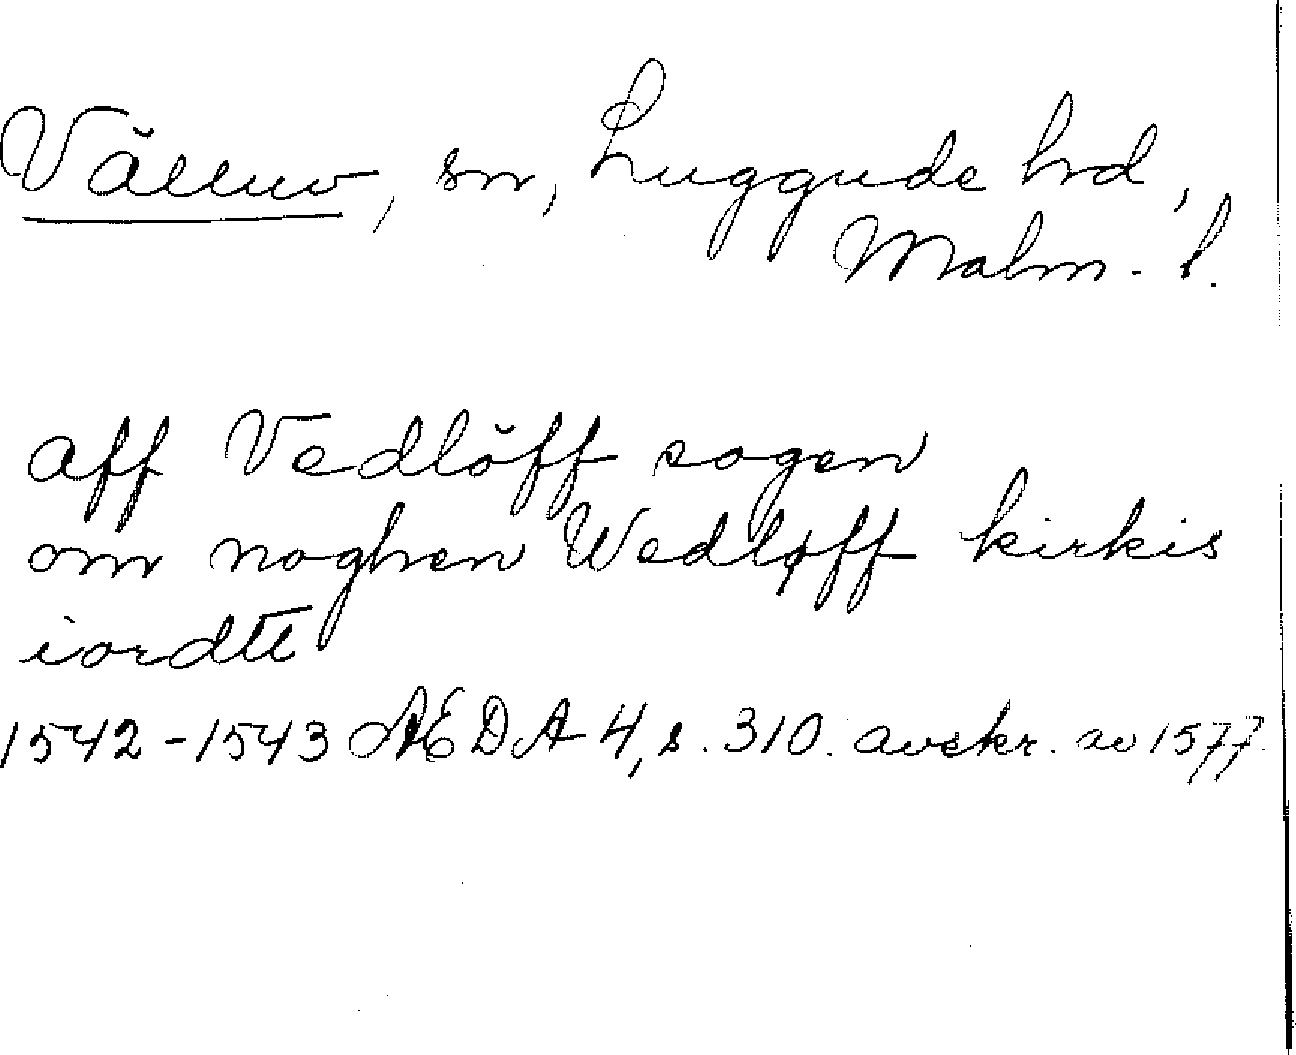 Välluv, sn, Luggude hrd,
Malm. l.
aff Vedlöff sogen
om noghen Wedløff kirkis
iordtt
1542-1543 ÆDA 4, s. 310. avskr. av 1577.